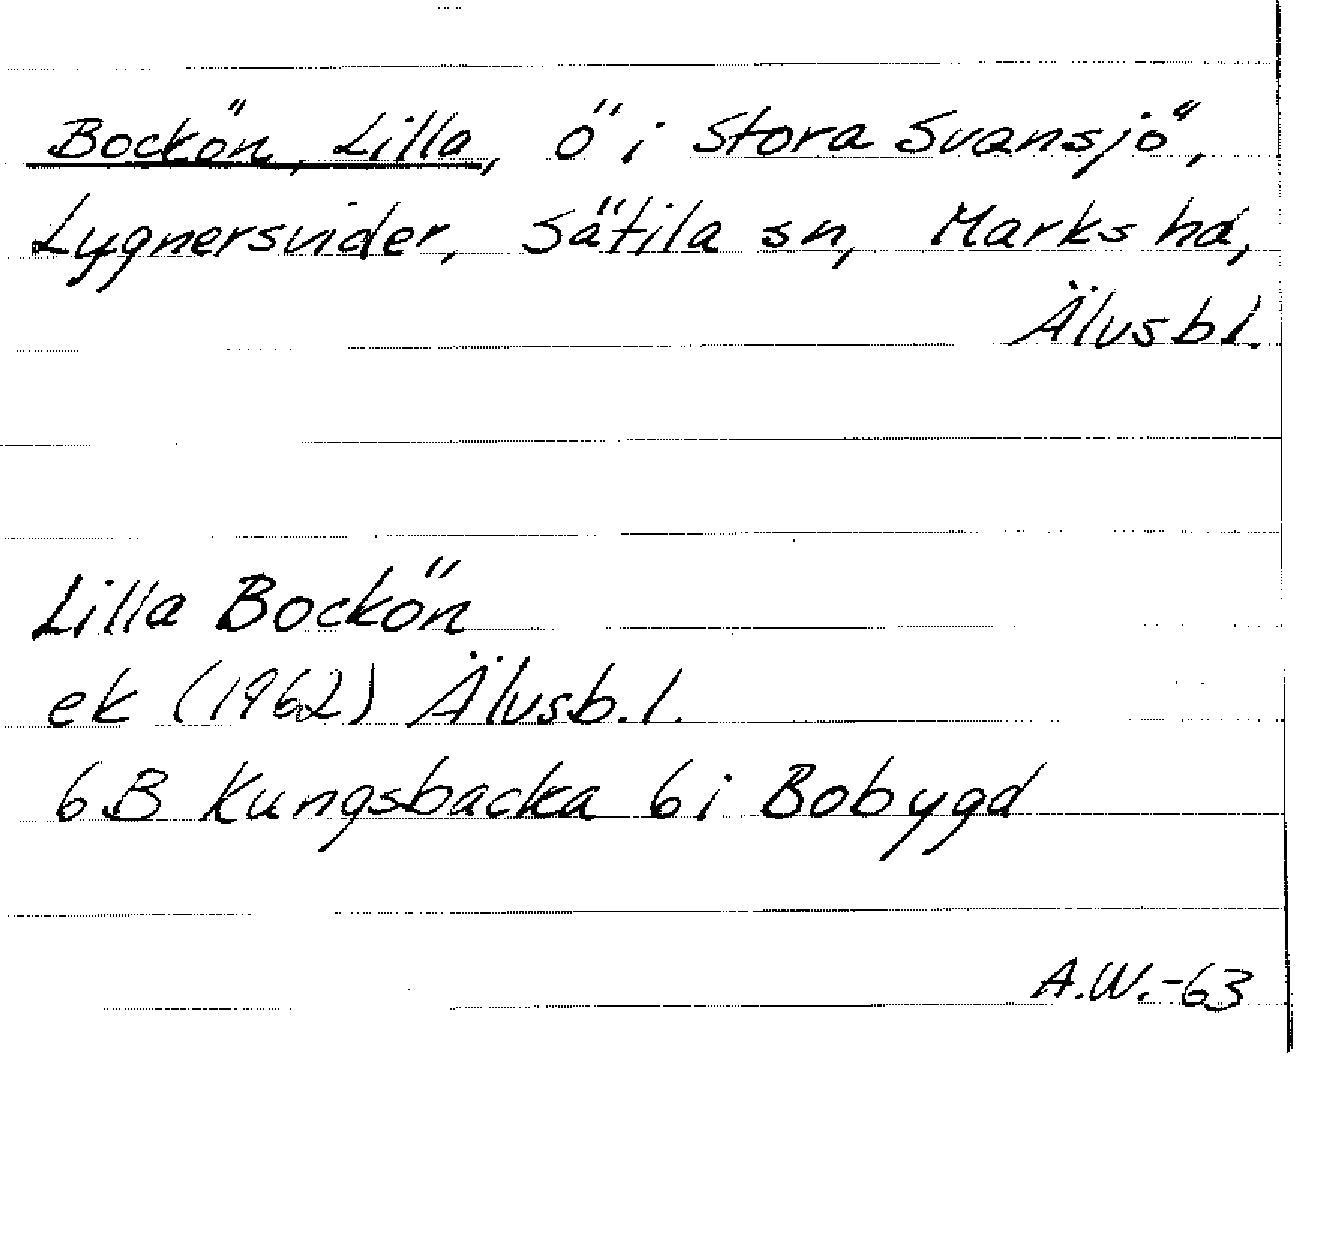 Bockön, Lilla, ö i Stora Svansjö,
Lygnersvider, Sätila sn, Marks hd,
Älvsb l.
Lilla Bockön
ek (1962) Älvsb. l.
6B Kungsbacka 6i Bobygd
A.W.-63